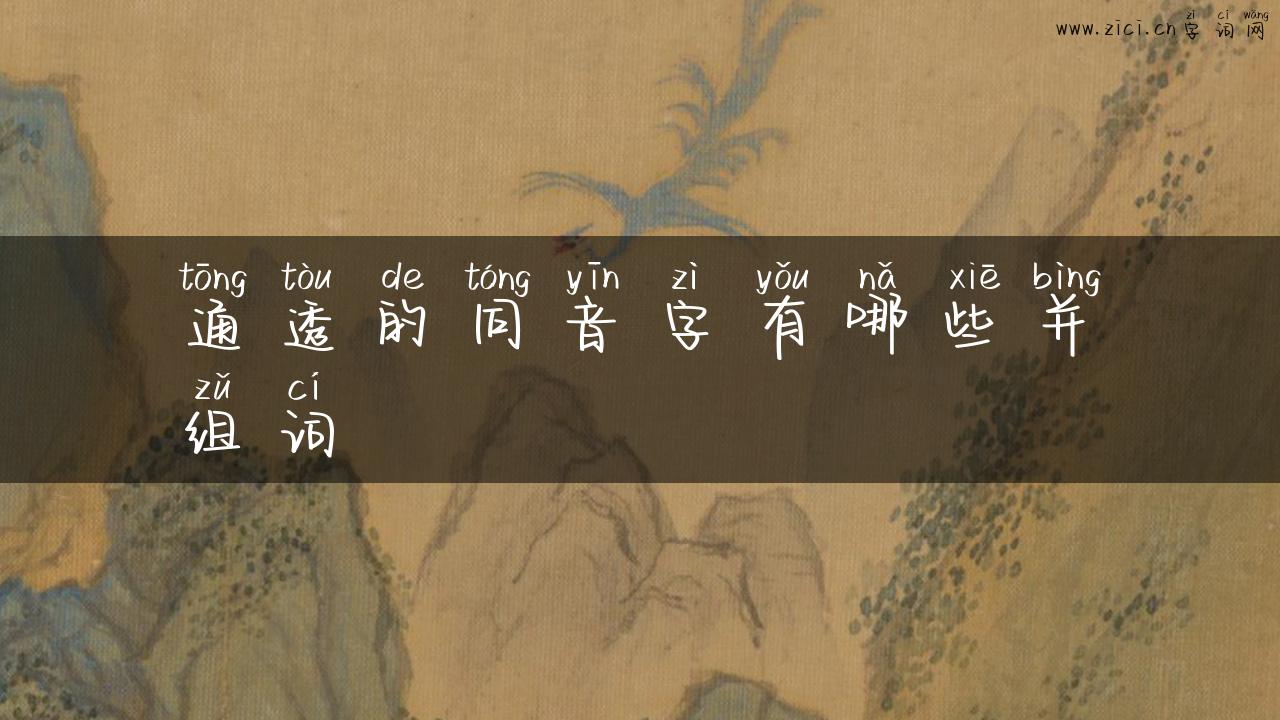 zì cí wǎng
www.zici.cn字词网
tōng tòu de tóng yīn zì yǒu nǎ xiē bìng
通透的同音字有哪些并
zǔ cí
组词